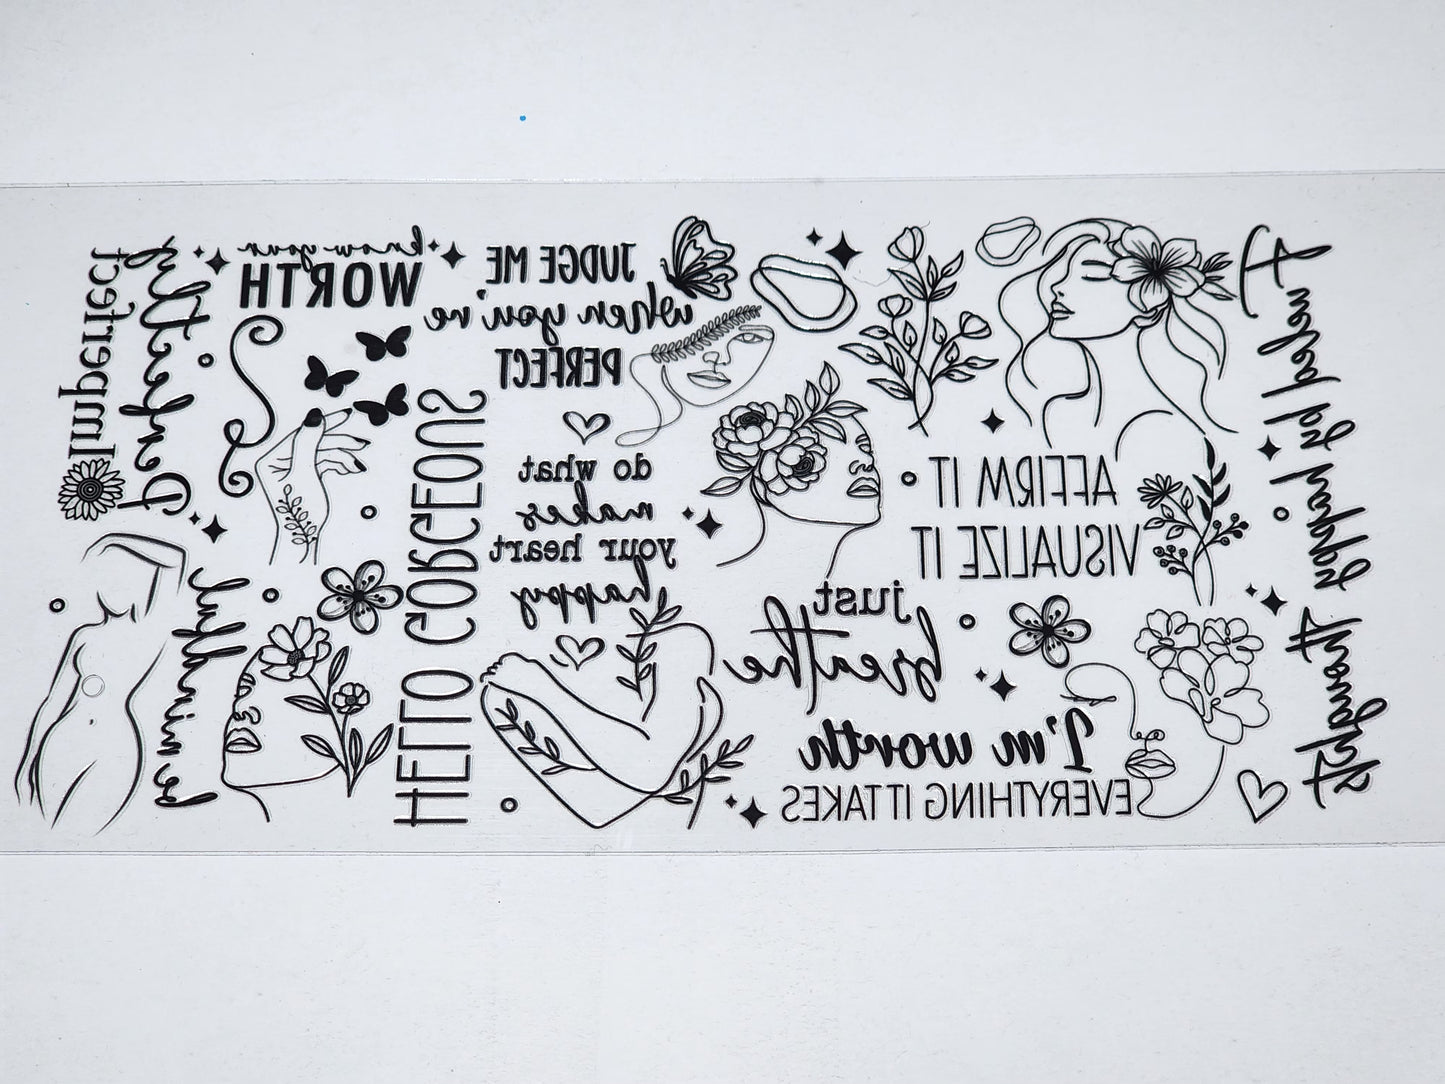 Perfectly
Imperfect
know your
WORTH
JUDGE ME
when you're
PERFECT
HELLO GORGEOUS
do what
makes
your heart
happy
AFFIRM IT
VISUALIZE IT
just
breathe
I'm worth
EVERYTHING IT TAKES
Fueled by happy thoughts